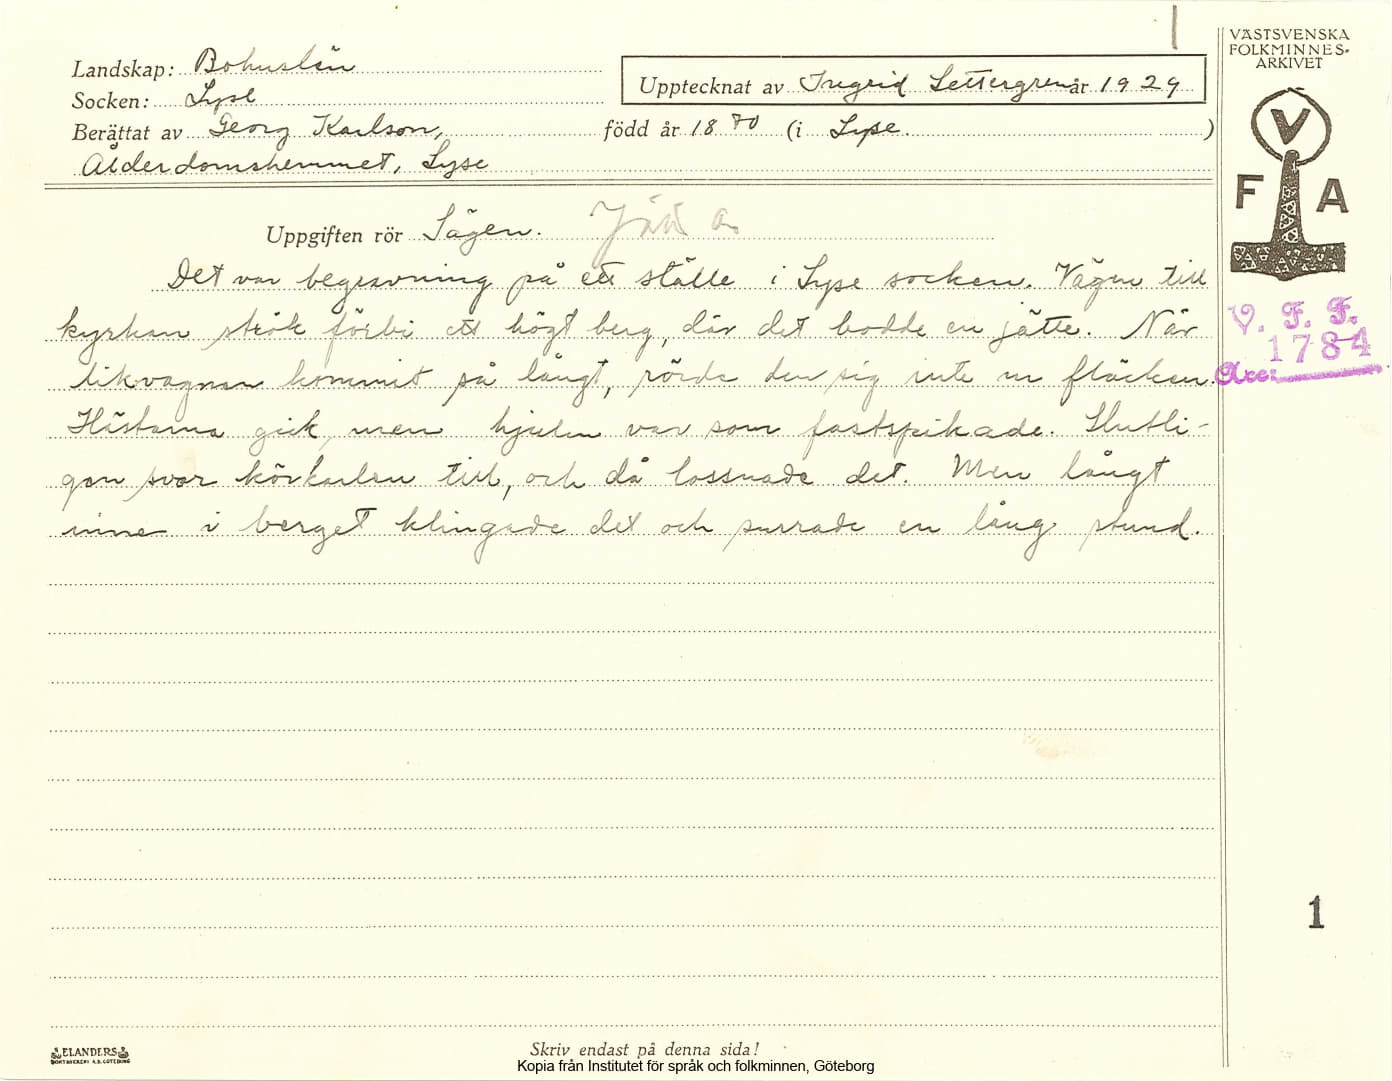 Landskap: Bohuslän
Socken: Lyse
Upptecknat av Ingrid Settergren år 1929
Berättat av Georg Karlson, född år 1870 (i Lyse.)
Ålderdomshemmet, Lyse
Uppgiften rör Sägen.
Det var begravning på ett ställe i Lyse socken. Vägen till
kyrkan strök förbi ett högt berg, där det bodde en jätte. När
likvagnen kommit så långt, rörde den sig inte ur fläcken.
Hästarna gick, men hjulen var som fastspikade. Slutli-
gen svor körkarlen till, och då lossnade det. Men långt
inne i berget klingade det och surrade en lång stund.
VÄSTSVENSKA
FOLKMINNES-
ARKIVET
V
F A
V. F. F.
1784
Acc:
1
ELANDERS
BOKTRYCKERI A.B. GÖTEBORG
Skriv endast på denna sida!
Kopia från Institutet för språk och folkminnen, Göteborg